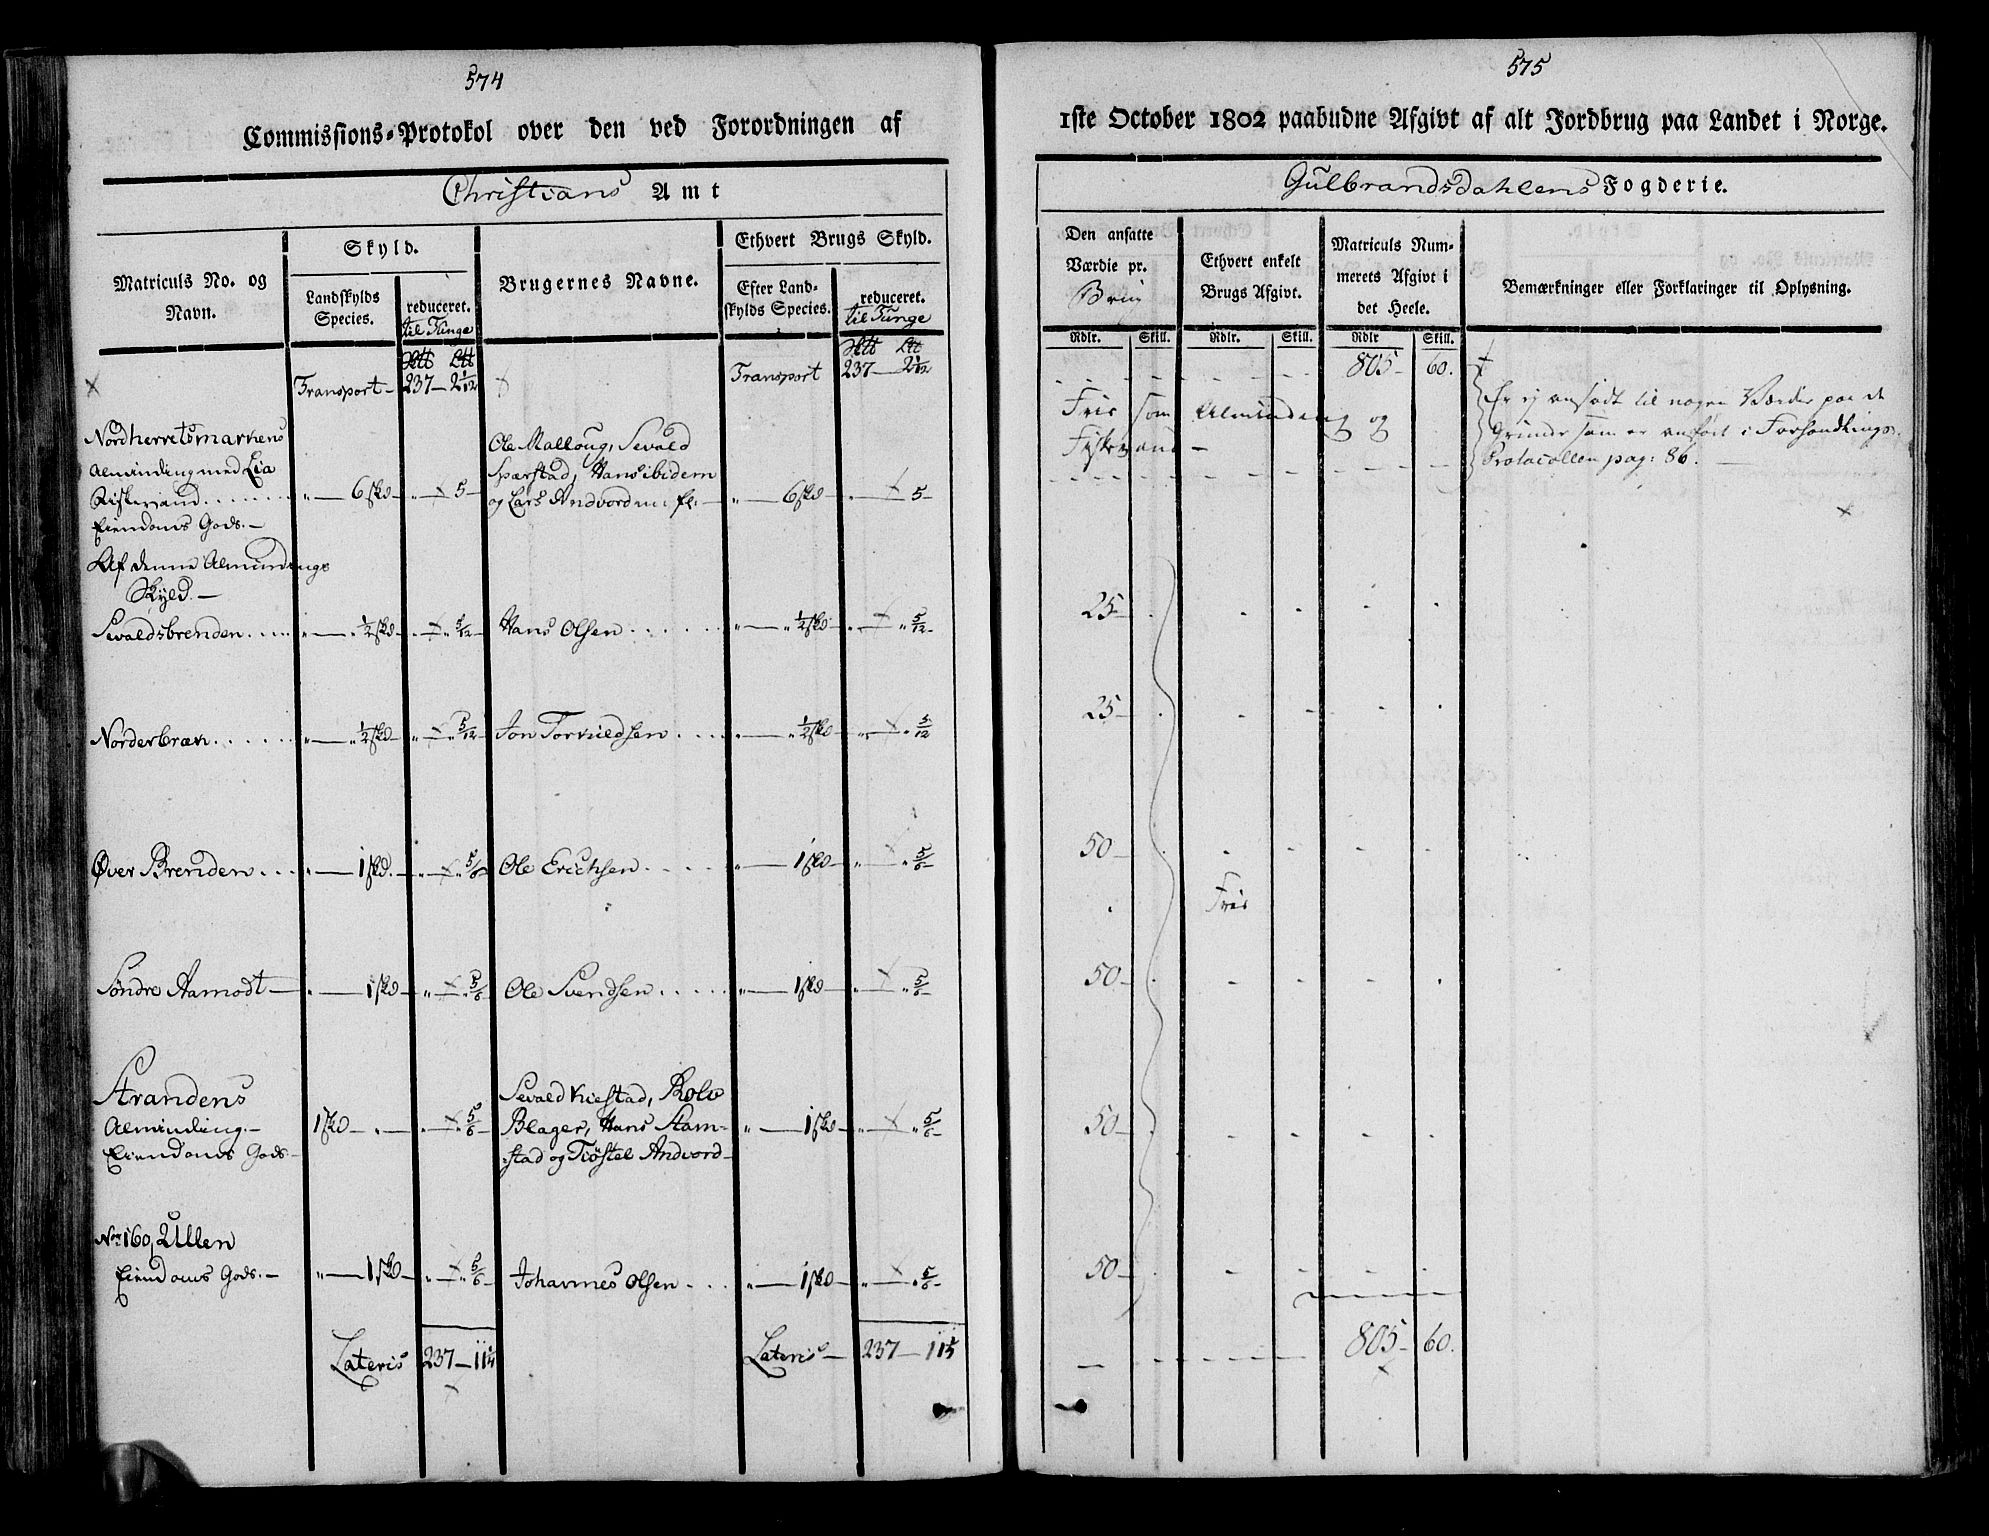 574
Commissions-Protokol over den ved Forordningen af
Christians Amt
Matriculs No. og Navn.
Skyld.
Landskylds Species.
reduceret.
til Tunge
Brugernes Navne.
Ethvert Brugs Skyld.
Efter Landskylds Species.
reduceret.
til Tunge
Transport 237 — 2 1/12 Transport 237 — 2 1/12
Nordherretsmarkens
Almindingmed Lia
Fiskevand 6 skd 5
Eiendoms Gods.
Ole Malloug, Sevald
Sparstad, Hans ibidem
og Lars Andvord m: fl: 6 skd 5
Af denne Almindings
Skyld.
Sevaldsbrenden 1/2 skd 5/12 Hans Olsen 1/2 skd 5/12
Nørderbræk 1/2 skd 5/12 Jon Torkildsen 1/2 skd 5/12
Øver Brenden 1 skd. 5/6 Ole Erichsen 1 skd 5/6
Søndre Aamodt 1 skd 5/6 Ole Svendsen 1 skd 5/6
Strandens
Alminding. 1 skd 5/6
Eiendoms Gods
Sevald Kiestad, Rolv
Blager, Hans Stam-
stad og Tiøstel Andvord 1 skd 5/6
No. 160, Ullen
Eiendoms Gods. 1 skd 5/6 Johannes Olsen 1 skd 5/6
Lateris 237 — 11 Lateris 237 — 11
575
1ste October 1802 paabudne Afgivt af alt Jordbrug paa Landet i Norge.
Gulbrandsdahlens Fogderie.
Den ansatte Værdie pr.
Brug
Rdlr. Skill.
Ethvert enkelt Brugs Afgivt.
Rdlr. Skill.
Matriculs Nummerets Afgivt i det Heele.
Rdlr Skill.
Bemærkninger eller Forklaringer til Oplysning.
805 60.
Frie som Alminding og
Fiskevand
Er ej ansadt til nogen Værdie paa de
Grunde som er anført i Forhandlings
Protocollen pag: 86.
25
25
50
Frie
50
50
50
805 60.